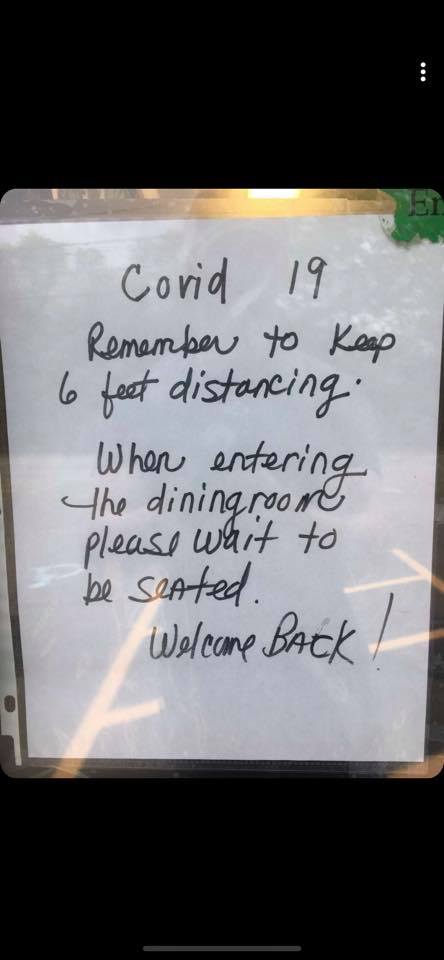 En
Covid 19
Remember to Keep
6 feet distancing.
When entering
the diningroom
please wait to
be seated.
Welcome BACK!